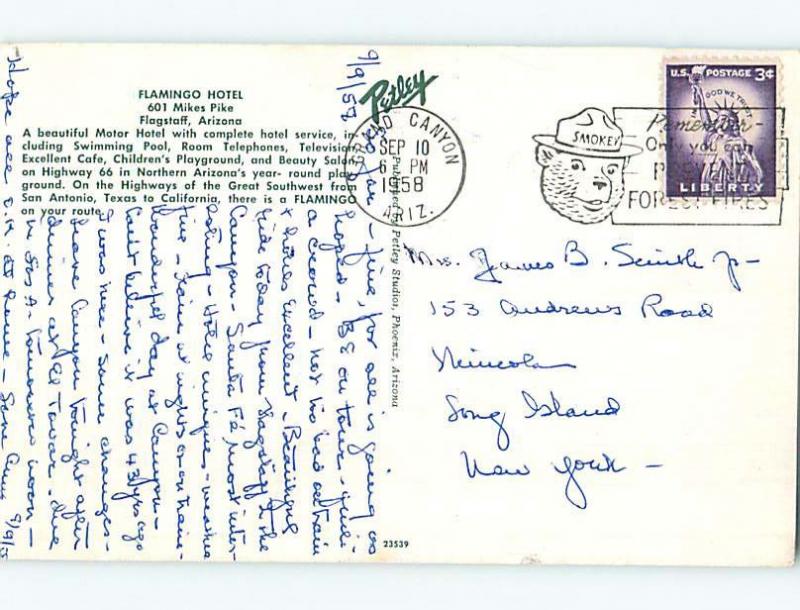 FLAMINGO HOTEL
601 Mikes Pike
Flagstaff, Arizona
A beautiful Motor Hotel with complete hotel service, in-
cluding Swimming Pool, Room Telephones, Television
Excellent Cafe, Children's Playground, and Beauty Salon
on Highway 66 in Northern Arizona's year- round play-
ground. On the Highways of the Great Southwest from
San Antonio, Texas to California, there is a FLAMINGO
on your route.
Petley
Published by Petley Studios, Phoenix, Arizona
23539
GRAND CANYON
SEP 10
6 PM
1958
ARIZ.
SMOKEY
Remember-
Only you can
PREVENT
FOREST FIRES
U.S. POSTAGE 3¢
IN GOD WE TRUST
LIBERTY
Mrs. James B. Smith Jr-
153 Andrews Road
Mineola
Long Island
New York -
9/9/58
So far - fine, for all is going as
hoped - on tour -
a crowd - not too bad on train
& hotels excellent. Beautiful
ride today from Flagstaff to the
Canyon - Santa Fé most inter-
esting - Hotel unique - weather
fine - rain at nights or on train -
Wonderful day at Canyon -
Can't believe it was 43 yrs ago
I was here - some changes -
Leave Canyon tonight after
dinner at El Tovar. due
in Los A - tomorrow noon -
Hope all O.K. at home - Love